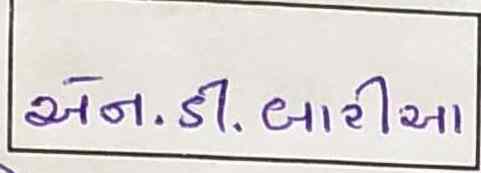 એન.ડી. બારીઆ